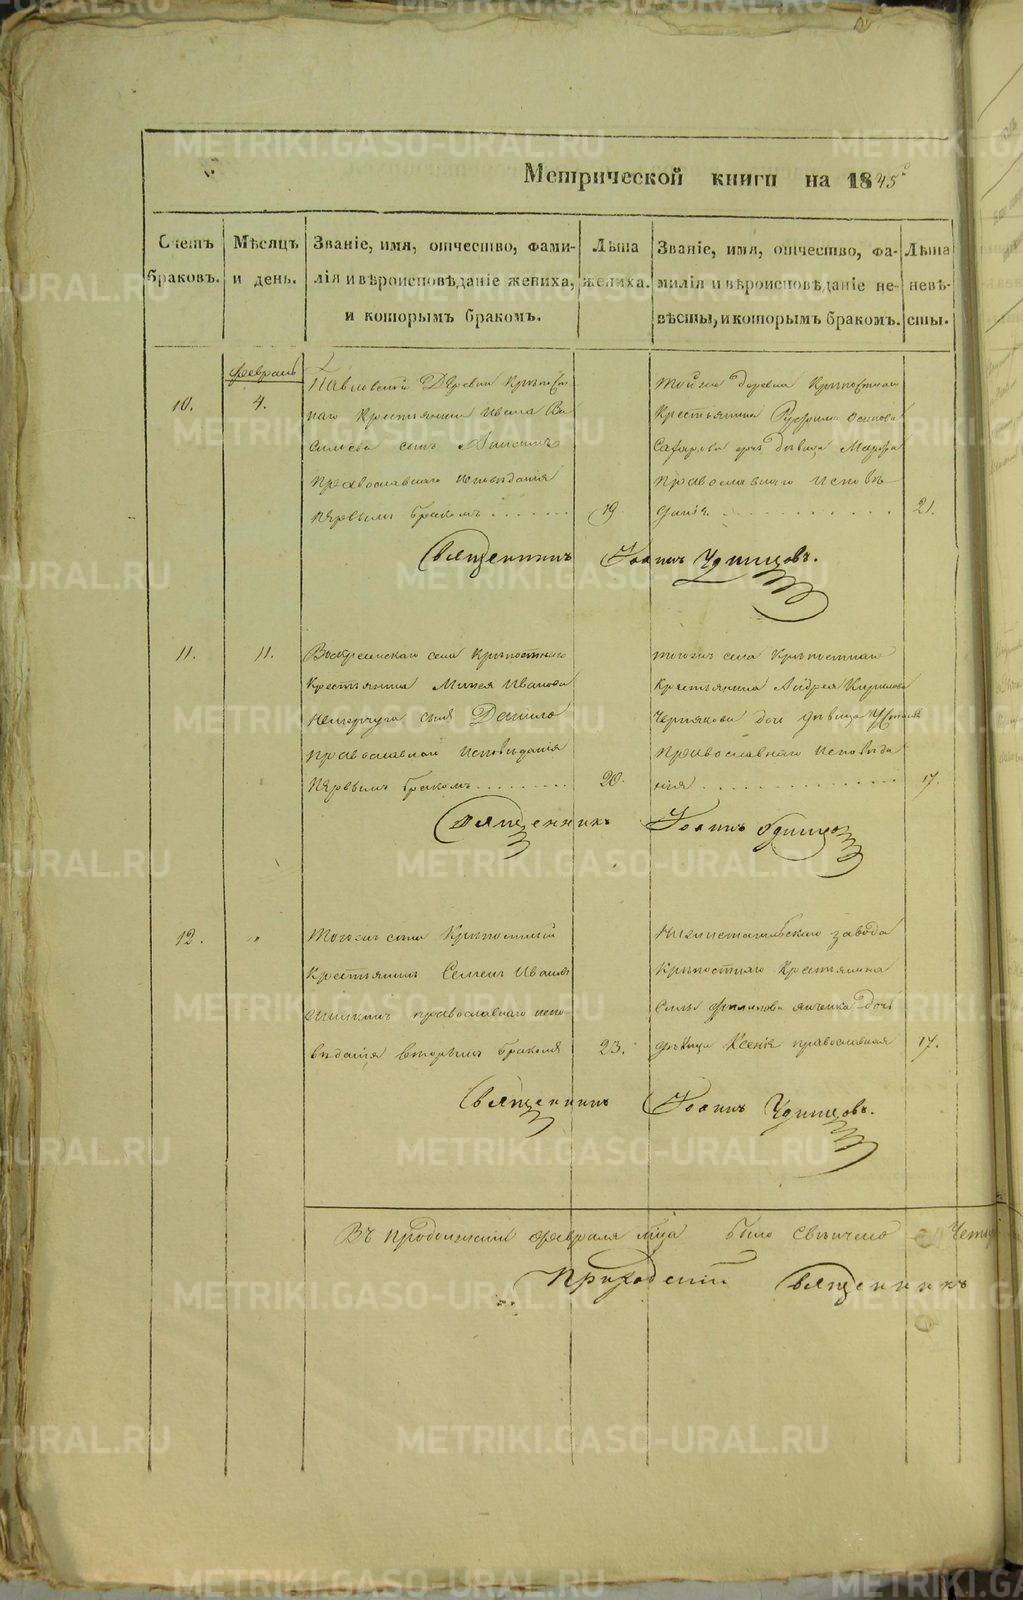 Метрической книги на 1845 г
Счетъ браковъ.
Мѣсяцъ и день.
Званіе, имя, отчество, фами-
лія и вѣроисповѣданіе жениха,
и которымъ бракомъ.
Лѣта жениха.
Званіе, имя, отчество, фа-
милія и вѣроисповѣданіе не-
вѣсты, и которымъ бракомъ.
Лѣта невѣ-
сты.
Февраль
10.
4.
Павловской Деревни Крѣпост
наго Крестьянина Ивана Ва
сильева сынъ
Православнаго исповѣданія
Первымъ бракомъ
19
Тойже деревни Крѣпостнаго
Крестьянина Осипова
дочь дѣвица Марфа
Православнаго исповѣ
данія.
21.
Священникъ Іоаннъ Удинцовъ.
11.
11.
Воскресенскаго села Крѣпостнаго
Крестьянина Ивана
сынъ Данило
Православнаго исповѣданія
Первымъ бракомъ
20.
тогожъ села Крѣпостнаго
Крестьянина Андрея Кирилова
Чернякова доч дѣвица
Православнаго исповѣда
нія
17.
Священникъ Іоаннъ Удинцо
12.
"
Тогожъ села Крѣпостный
Крестьянинъ Семенъ Ивановъ
православнаго испо-
вѣданія вторымъ бракомъ
23.
завода
Крѣпостнаго Крестьянина
Силы Филипова дочь
дѣвица Ксенія православная
17.
Священникъ Іоаннъ Удинцовъ.
Въ продолженіи февраля м͠ца было свѣнчено
Приходскій Священникъ
METRIKI.GASO-URAL.RU